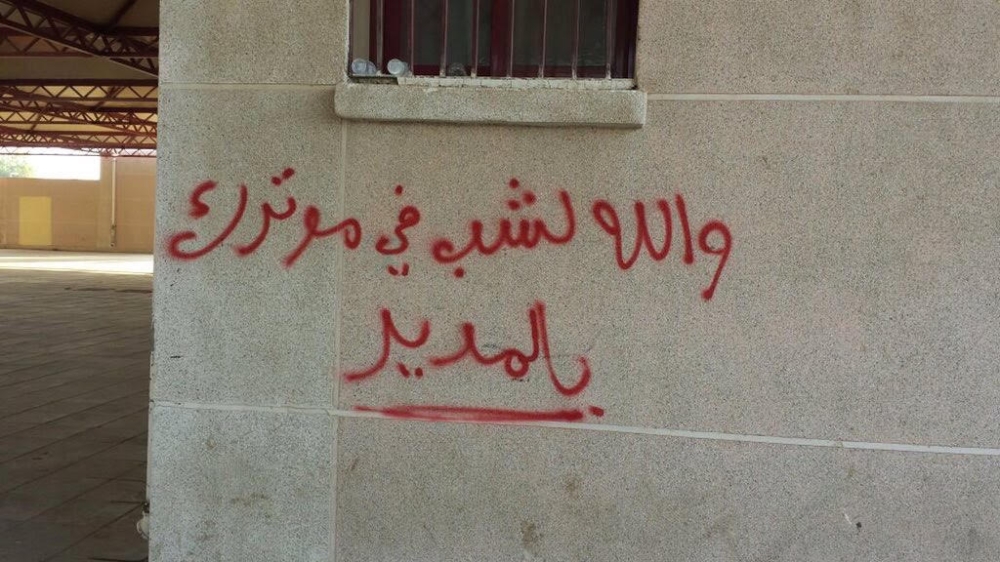 والله لشب في موترك
يالمدير